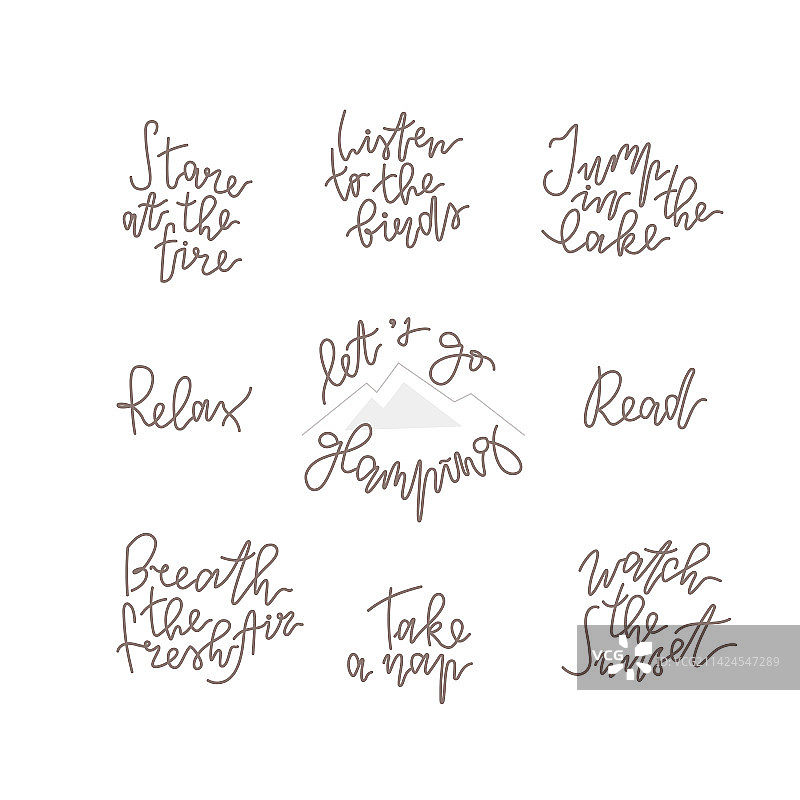 Stare
at the
fire
Listen
to the
birds
Jump
in the
lake
Relax
let's go
glamping
Read
Breath
the Air
fresh
Take
a nap
Watch
the
Sunset
VCG
VCG211424547289